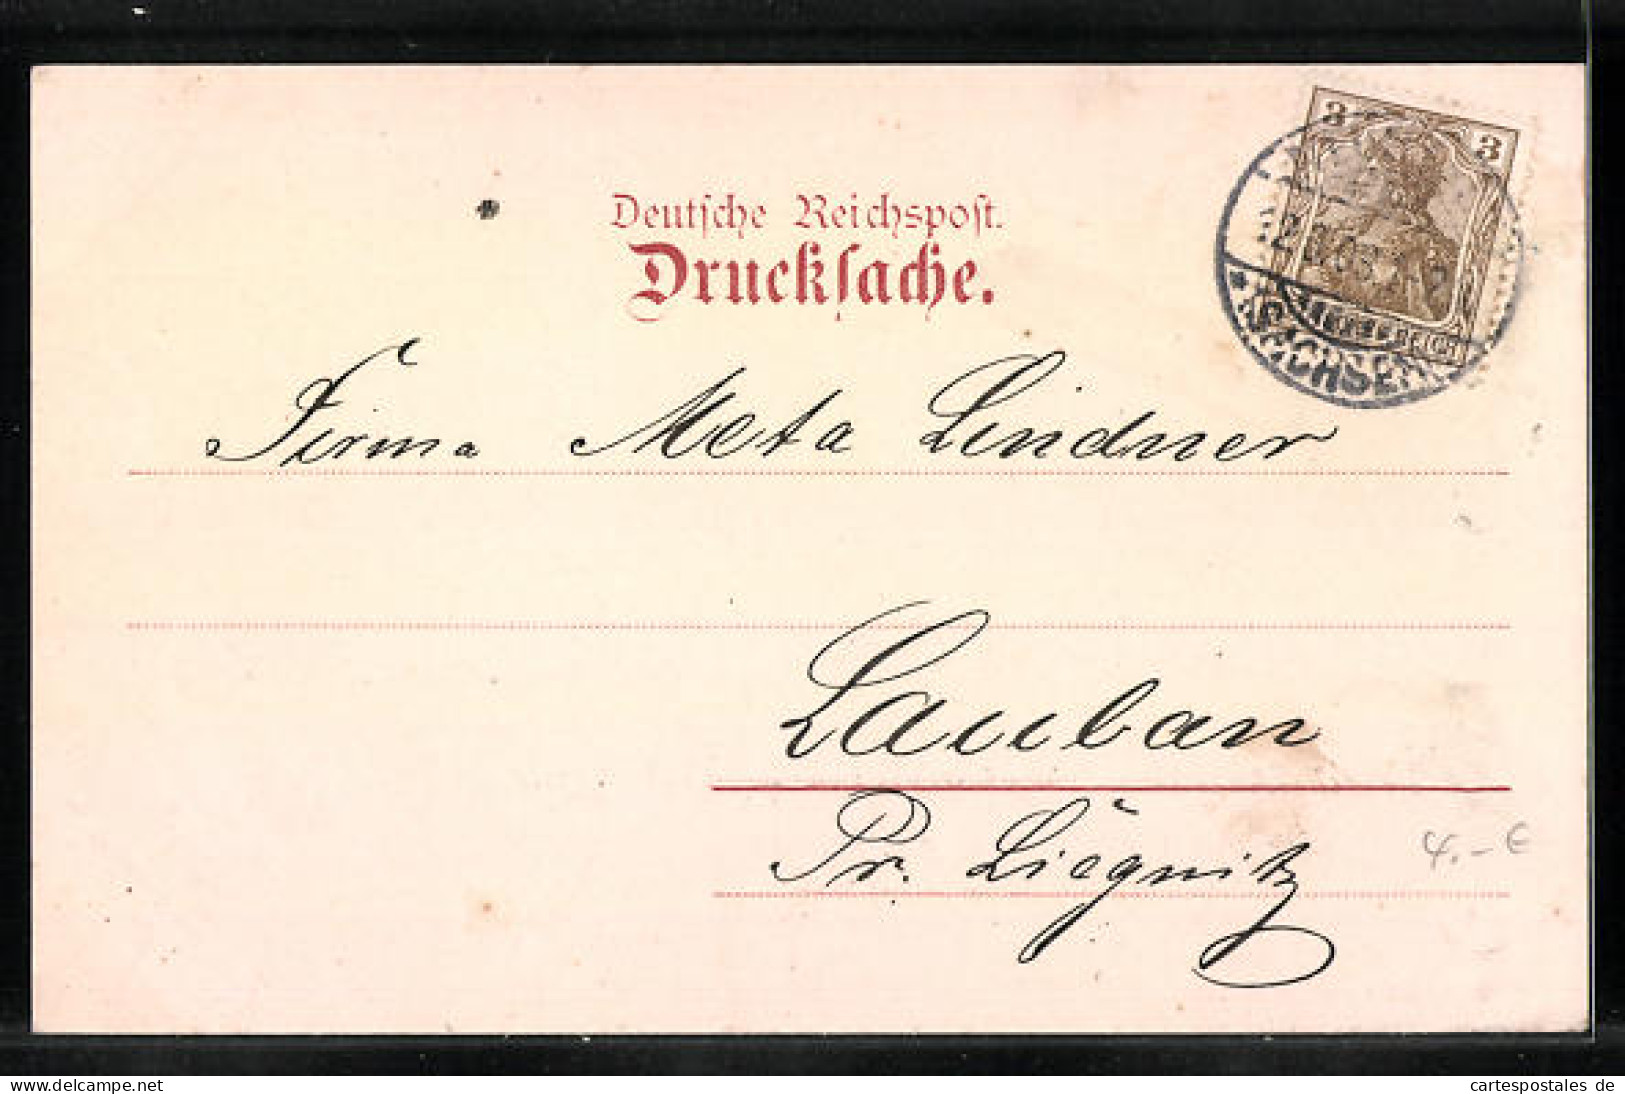 3 3
Deutsche Reichspost.
Drucksache.
SACHSEN
Firma Meta Lindner
Lauban
Pr. Liegnitz
4.-€
www.delcampe.net
cartespostales de